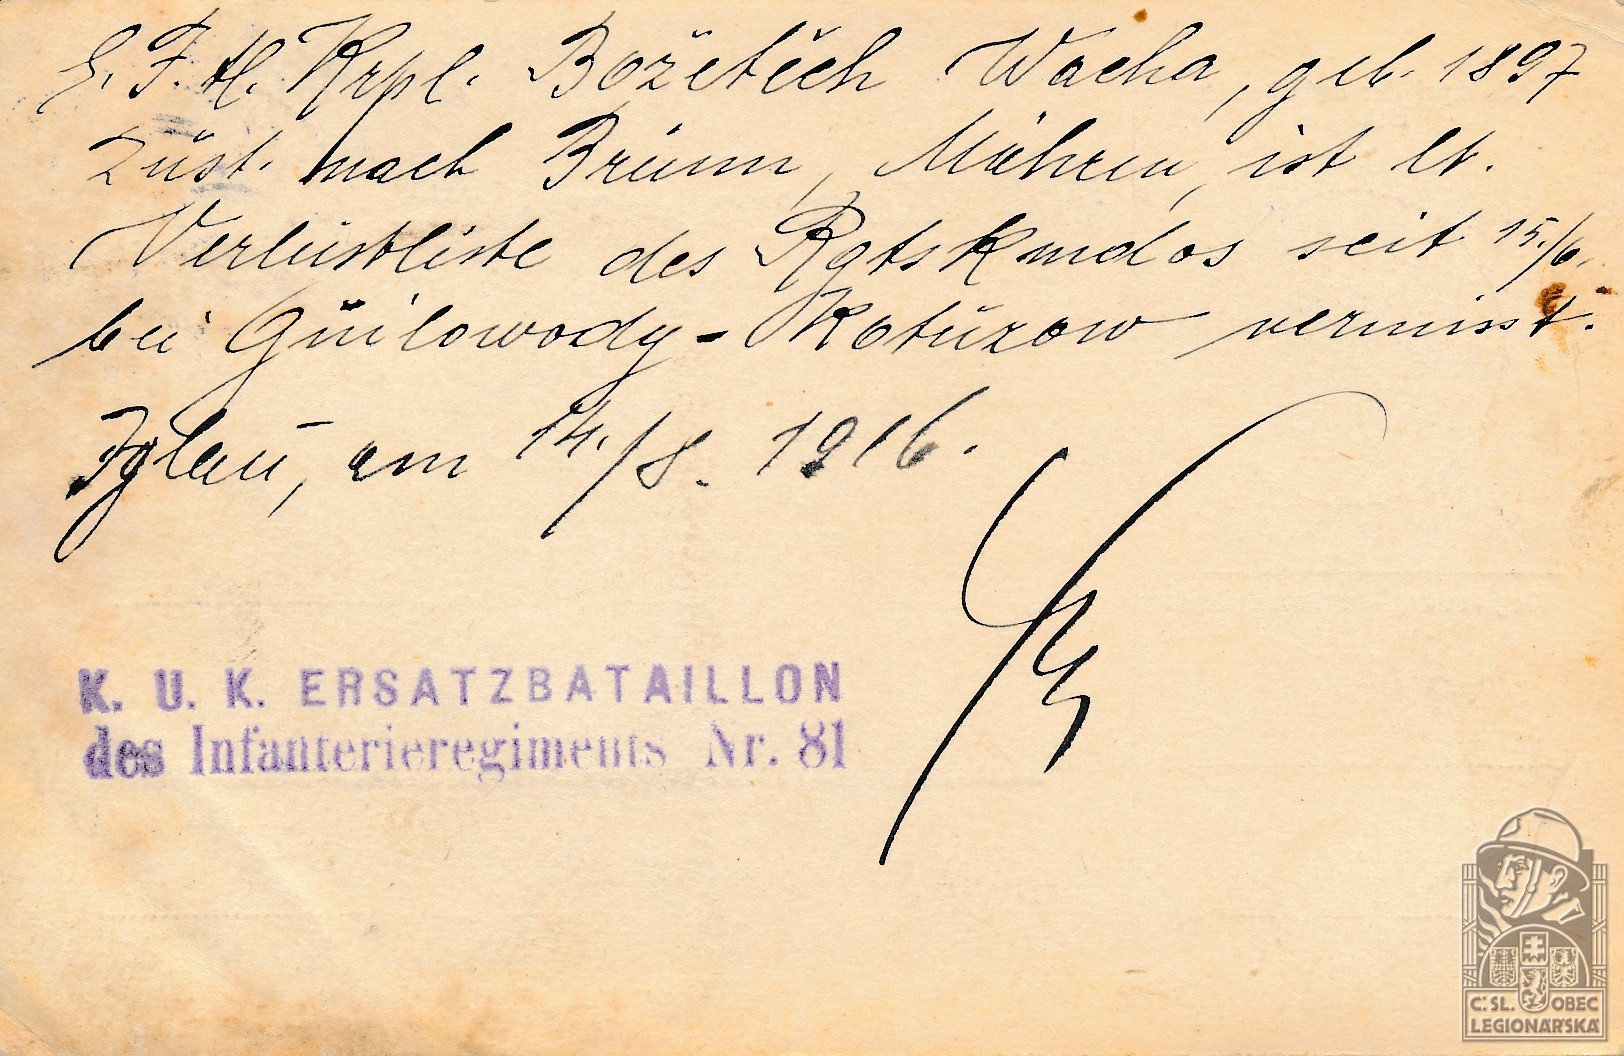 E. F. tl. Krpl. Božetěch Wacha, geb. 1897
zust. nach Brünn, Mähren, ist lt.
Verlustliste des Rgtskmdos seit 15./6.
bei Gnilowody - Kotuzow vermisst.
Iglau, am 14./8. 1916.
K. U. K. ERSATZBATAILLON
des Infanterieregiments Nr. 81
Č. SL. OBEC
LEGIONÁŘSKÁ